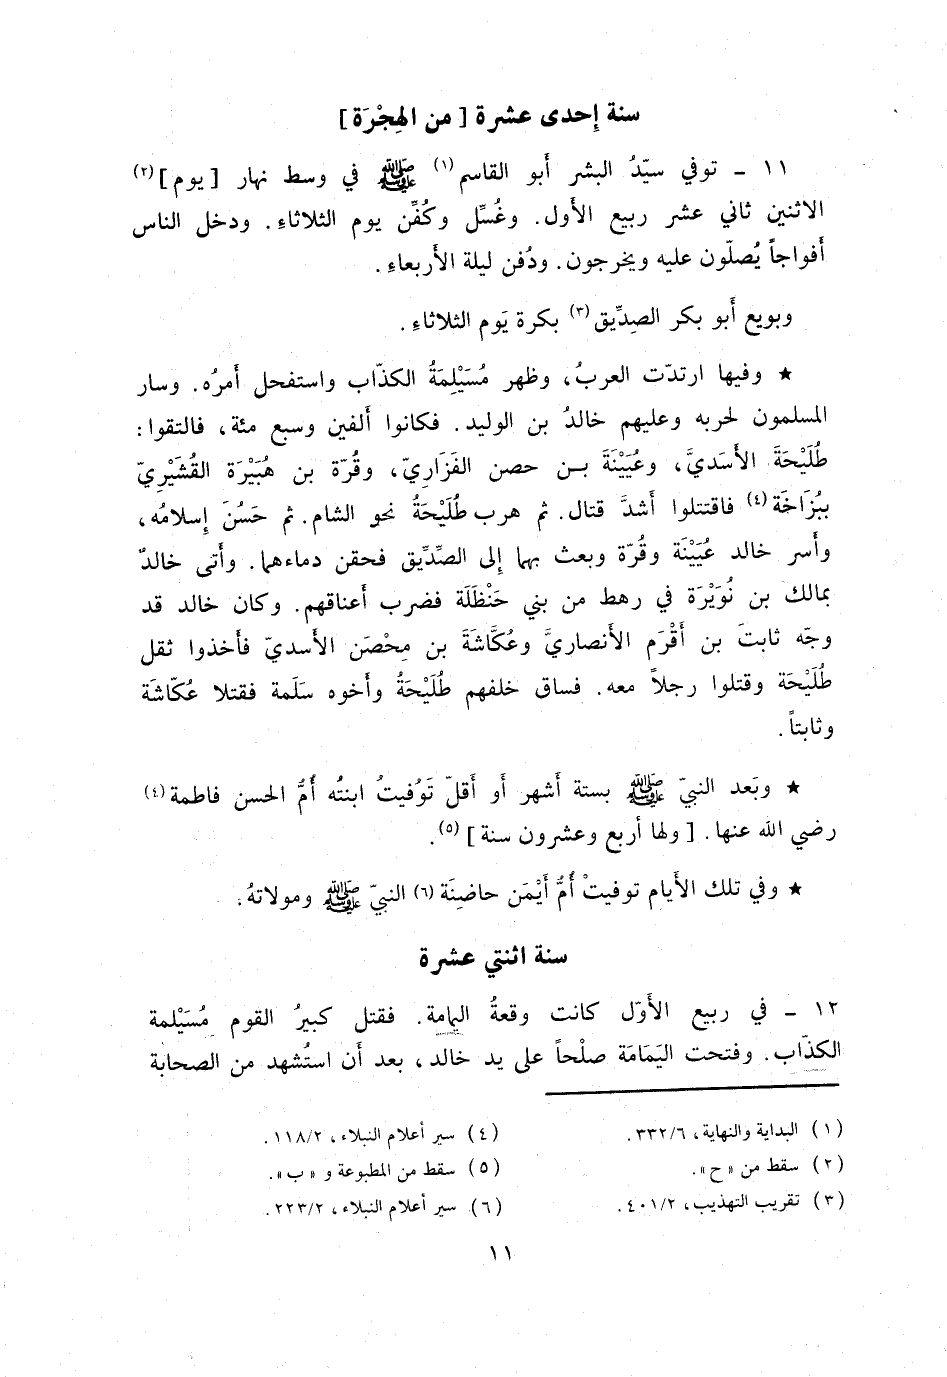 سنة إحدى عشرة [ من الهِجْرَة ]
١١ ـ توفي سيّدُ البشر أبو القاسم(١) ﷺ في وسط نهار [ يوم ](٢)
الاثنين ثاني عشر ربيع الأول. وغُسِّل وكُفِّن يوم الثلاثاء. ودخل الناس
أفواجاً يُصلّون عليه ويخرجون. ودُفن ليلة الأربعاء.
وبويع أبو بكر الصِدِّيق(٣) بكرة يَوم الثلاثاء.
★ وفيها ارتدّت العربُ، وظهر مُسَيْلِمَةُ الكذّاب واستفحل أمرُه. وسار
المسلمون لحربه وعليهم خالدُ بن الوليد. فكانوا ألفين وسبع مئة، فالتقوا:
طُلَيْحَةَ الأسَديَّ، وعُيَيْنَةَ بـن حصن الفَزَاريّ، وقُرّة بن هُبَيْرَة القُشَيْرِيّ
ببُزَاخَة(٤) فاقتتلوا أشدَّ قتال. ثم هرب طُلَيْحَةُ نحو الشام. ثم حَسُنَ إسلامُه،
وأسر خالد عُيَيْنَة وقُرّة وبعث بهما إلى الصِّدِّيق فحقن دماءهما. وأتى خالدٌ
بمالك بن نُوَيْرَة في رهط من بني حَنْظَلَة فضرب أعناقهم. وكان خالد قد
وجّه ثابتَ بن أقْرَم الأنصاريَّ وعُكَّاشَةَ بن مِحْصَن الأسديّ فأخذوا ثقل
طُلَيْحَة وقتلوا رجلاً معه. فساق خلفهم طُلَيْحَةُ وأخوه سَلَمة فقتلا عُكّاشَة
وثابتاً.
★ وبَعد النبيّ ﷺ بستة أشهر أو أقلّ تَوُفيتُ ابنتُه أمُّ الحسن فاطمة(٤)
رضي الله عنها. [ ولها أربع وعشرون سنة ](٥).
★ وفي تلك الأيام توفيتْ أُمُّ أيْمَن حاضِنَة(٦) النبيّ ﷺ ومولاتهُ.
سنة اثنتي عشرة
١٢ ـ في ربيع الأوّل كانت وقعةُ اليمامة. فقتل كبيرُ القوم مُسَيْلمة
الكذّاب. وفتحت اليَمَامَة صلْحاً على يد خالد، بعد أن استُشهد من الصحابة
(١) البداية والنهاية، ٣٣٢/٦.
(٢) سقط من «ح».
(٣) تقريب التهذيب، ٤٠١/٢.
(٤) سير أعلام النبلاء، ١١٨/٢.
(٥) سقط من المطبوعة و «ب».
(٦) سير أعلام النبلاء، ٢٢٣/٢.
١١